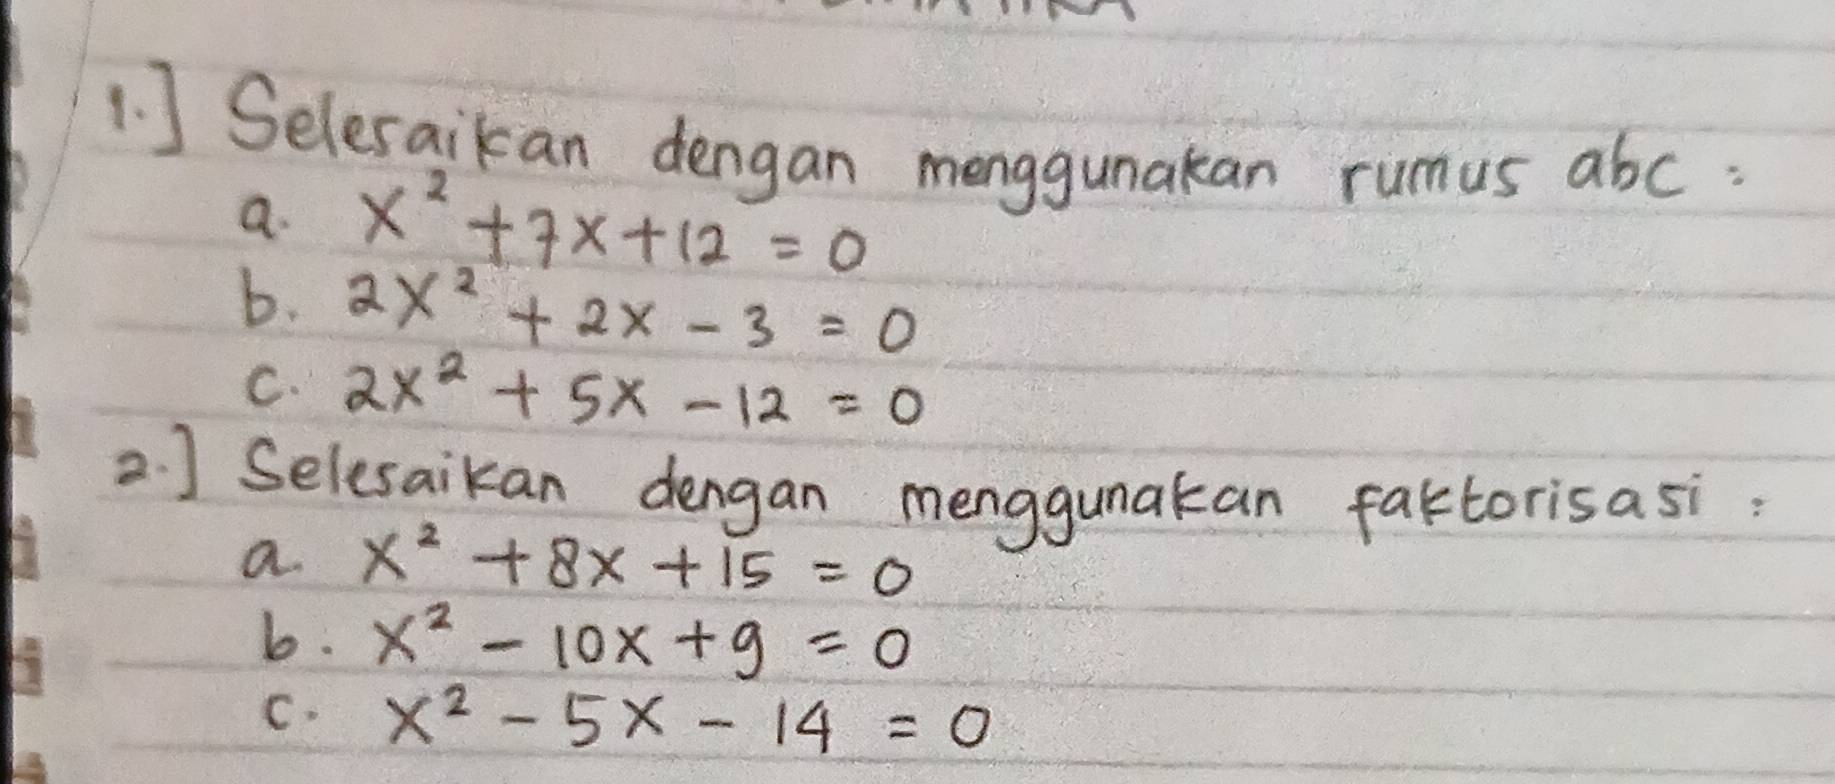 1.] Selesaikan dengan menggunakan rumus abc :
a. x² + 7x + 12 = 0
b. 2x² + 2x - 3 = 0
c. 2x² + 5x - 12 = 0
2.] Selesaikan dengan menggunakan faktorisasi :
a. x² + 8x + 15 = 0
b. x² - 10x + 9 = 0
c. x² - 5x - 14 = 0